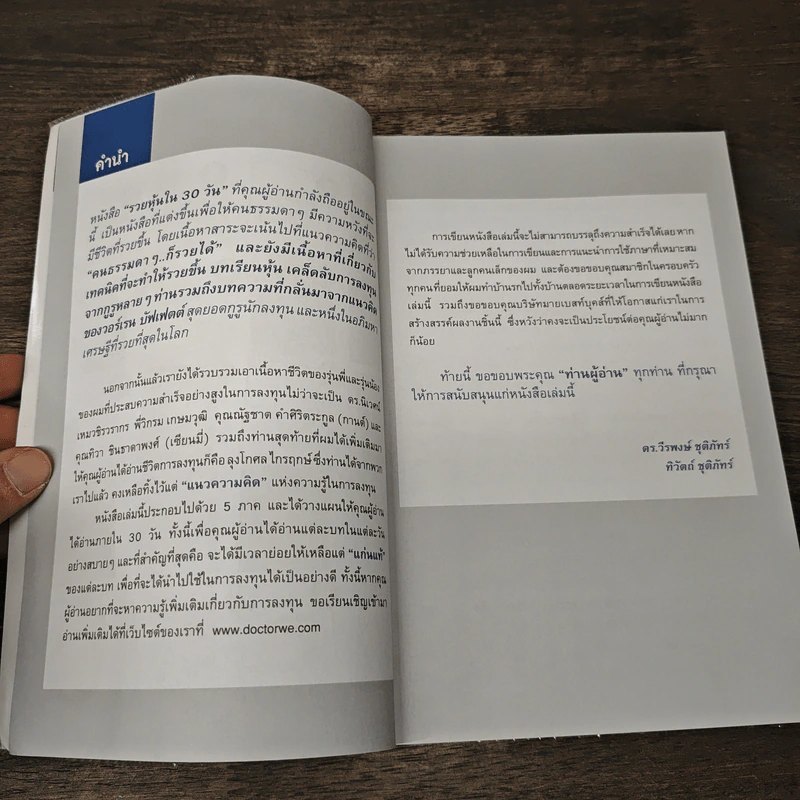 คำนำ
หนังสือ "รวยหุ้นใน 30 วัน" ที่คุณผู้อ่านกำลังถืออยู่ในขณะ
นี้ เป็นหนังสือที่แต่งขึ้นเพื่อให้คนธรรมดาๆ มีความหวังที่จะ
มีชีวิตที่รวยขึ้น โดยเนื้อหาสาระจะเน้นไปที่แนวความคิดที่ว่า
"คนธรรมดาๆ..ก็รวยได้" และยังมีเนื้อหาที่เกี่ยวกับ
เทคนิคที่จะทำให้รวยขึ้น บทเรียนหุ้น เคล็ดลับการลงทุน
จากกูรูหลายๆ ท่านรวมถึงบทความที่กลั่นมาจากแนวคิด
ของวอร์เรน บัฟเฟตต์ สุดยอดกูรูนักลงทุน และหนึ่งในอภิมหา
เศรษฐีที่รวยที่สุดในโลก
นอกจากนั้นแล้วเรายังได้รวบรวมเอาเนื้อหาชีวิตของรุ่นพี่และรุ่นน้อง
ของผมที่ประสบความสำเร็จอย่างสูงในการลงทุนไม่ว่าจะเป็น ดร.นิเวศน์
เหมวชิรวรากร พี่วิกรม เกษมวุฒิ คุณณัฐชาต คำศิริตระกูล (กานต์) และ
คุณทิวา ชินธาดาพงศ์ (เซียนมี่) รวมถึงท่านสุดท้ายที่ผมได้เพิ่มเติมมา
ให้คุณผู้อ่านได้อ่านชีวิตการลงทุนก็คือ ลุงโกศล ไกรฤกษ์ ซึ่งท่านได้จากพวก
เราไปแล้ว คงเหลือทิ้งไว้แต่ "แนวความคิด" แห่งความรู้ในการลงทุน
หนังสือเล่มนี้ประกอบไปด้วย 5 ภาค และได้วางแผนให้คุณผู้อ่าน
ได้อ่านภายใน 30 วัน ทั้งนี้เพื่อคุณผู้อ่านได้อ่านแต่ละบทในแต่ละวัน
อย่างสบายๆ และที่สำคัญที่สุดคือ จะได้มีเวลาย่อยให้เหลือแต่ "แก่นแท้"
ของแต่ละบท เพื่อที่จะได้นำไปใช้ในการลงทุนได้เป็นอย่างดี ทั้งนี้หากคุณ
ผู้อ่านอยากที่จะหาความรู้เพิ่มเติมเกี่ยวกับการลงทุน ขอเรียนเชิญเข้ามา
อ่านเพิ่มเติมได้ที่เว็บไซต์ของเราที่ www.doctorwe.com
การเขียนหนังสือเล่มนี้จะไม่สามารถบรรลุถึงความสำเร็จได้เลย หาก
ไม่ได้รับความช่วยเหลือในการเขียนและการแนะนำการใช้ภาษาที่เหมาะสม
จากภรรยาและลูกคนเล็กของผม และต้องขอขอบคุณสมาชิกในครอบครัว
ทุกคนที่ยอมให้ผมทำบ้านรกไปทั้งบ้านตลอดระยะเวลาในการเขียนหนังสือ
เล่มนี้ รวมถึงขอขอบคุณบริษัทมายเบสท์บุคส์ที่ให้โอกาสแก่เราในการ
สร้างสรรค์ผลงานชิ้นนี้ ซึ่งหวังว่าคงจะเป็นประโยชน์ต่อคุณผู้อ่านไม่มาก
ก็น้อย
ท้ายนี้ ขอขอบพระคุณ "ท่านผู้อ่าน" ทุกท่าน ที่กรุณา
ให้การสนับสนุนแก่หนังสือเล่มนี้
ดร.วีรพงษ์ ชุติภัทร์
ทิวัตถ์ ชุติภัทร์